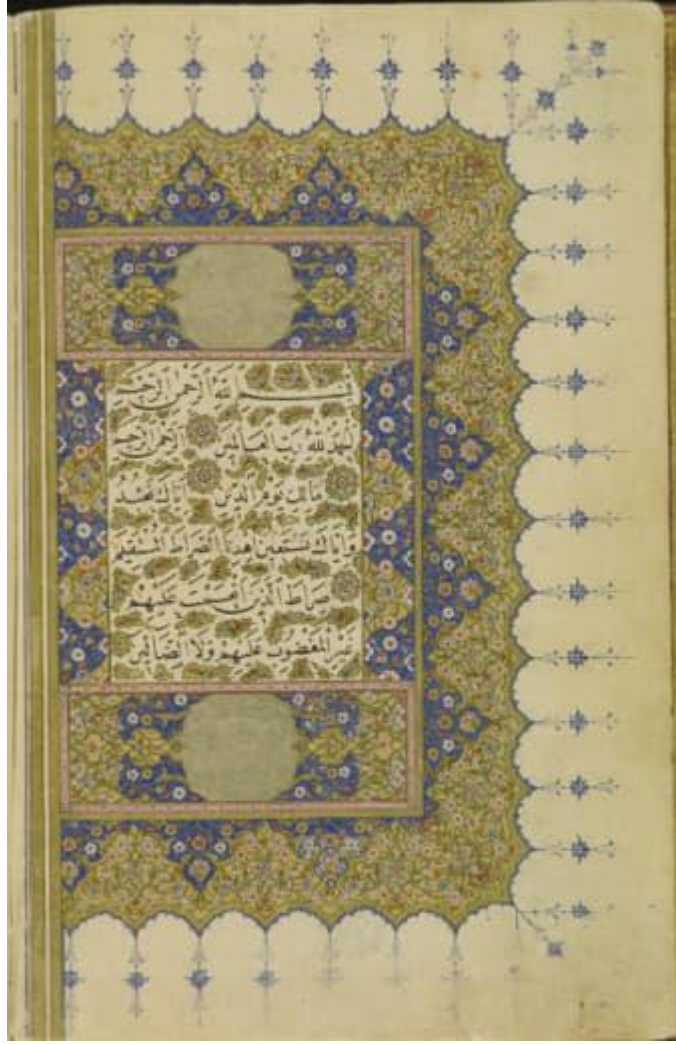 بسم الله الرحمن الرحيم
الحمد لله رب العالمين الرحمن الرحيم
مالك يوم الدين اياك نعبد
واياك نستعين اهدنا الصراط المستقيم
صراط الذين انعمت عليهم
غير المغضوب عليهم ولا الضالين